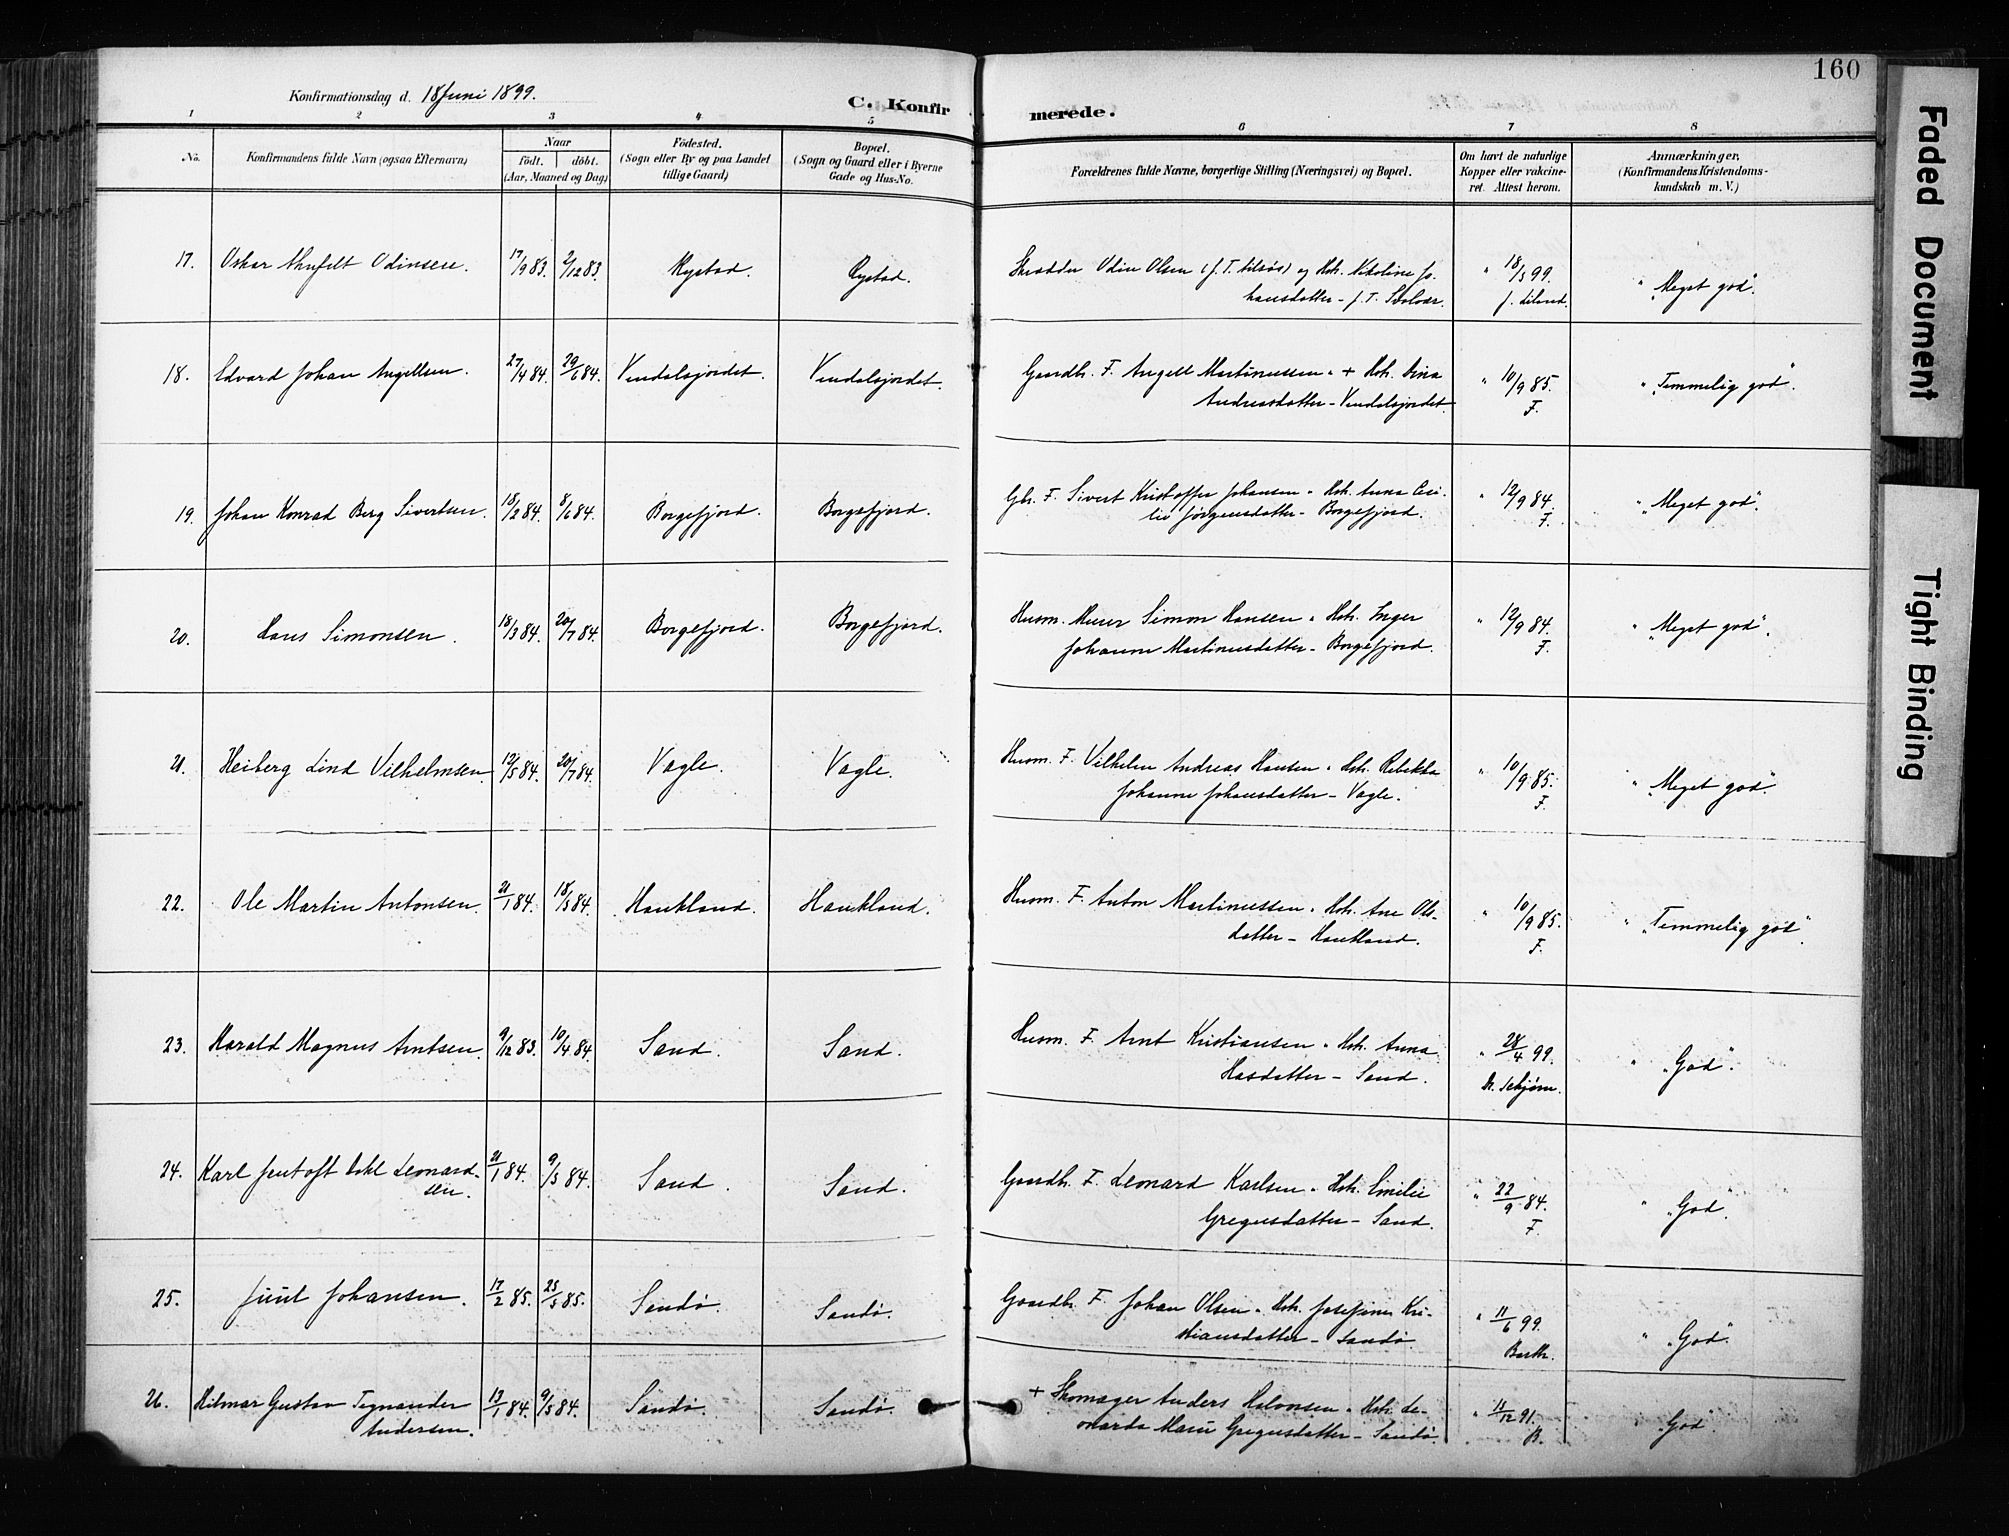 160
Konfirmationsdag d. 18 Juni 1899.
C. Konfirmerede.
1 2 3 4 5 6 7 8
No.
Konfirmandens fulde Navn (ogsaa Efternavn)
Naar
født. døbt.
(Aar, Maaned og Dag)
Fødested.
(Sogn eller By og paa Landet
tillige Gaard)
Bopæl.
(Sogn og Gaard eller i Byerne
Gade og Hus-No.
Forældrenes fulde Navne, borgerlige Stilling (Næringsvei) og Bopæl.
Om havt de naturlige
Kopper eller vakcine-
ret. Attest herom.
Anmærkninger,
(Konfirmandens Kristendoms-
kundskab m. V.)
17. Oskar Odinsen. 17/9 83. 2/12 83. Rystad. Rystad. Skrædder Odin Olsen og Hst. Nikoline Jo- " 18/5 99. " „Meget god".
hansdatter - f. T. Svolvær.
18. Edvard Johan Angellsen. 27/4 84. 29/6 84. Vendalsjordet. Vendalsjordet. Gaardb. F. Angell Martinussen " + Hst. Andreasdatter - Vendalsjordet. " 10/9 85. F. " „Temmelig god".
19. Johan Konrad Berg Sivertsen. 18/2 84. 8/6 84. Borgefjord. Borgefjord. Gbr. F. Sivert Kristoffer Johansen " Hst. Anna Ceci-
lie Jørgensdatter - Borgefjord. " 12/9 84. F. " „Meget god".
20. Hans Simonsen. 18/3 84. 20/7 84. Borgefjord. Borgefjord. Husm. Murer Simon Hansen " Hst. Inger
Johanne Martinusdatter - Borgefjord. " 12/9 84. F. " „Meget god".
21. Heiberg Lind Vilhelmsen 12/5 84. 20/7 84. Vagle. Vagle. Husm. F. Vilhelm Andreas Hansen " Hst. Rebekka
Johanne Johansdatter - Vagle. " 10/9 85. F. " „Meget god".
22. Ole Martin Antonsen. 21/1 84. 18/5 84. Haukland. Haukland. Husm. F. Anton Martinussen " Hst. Ane Ols-
datter - Haukland. " 10/9 85. F. " „Temmelig god".
23. Harald Magnus Arntsen. 9/12 83. 10/4 84. Sand. Sand. Husm. F. Arnt Kristiansen " Hst. Anna
Hasdatter - Sand. " 28/4 99. " „God".
24. Karl Jentoft Leonard-
sen. 21/1 84. 9/5 84. Sand. Sand. Gaardb. F. Leonard Karlsen " Hst. Emilie
Gregusdatter - Sand. " 22/9 84. F. " „God".
25. Juul Johansen. 17/2 85. 25/5 85. Sandø. Sandø. Gaardb. F. Johan Olsen " Hst. Josefine Kri-
stiansdatter - Sandø. " 11/6 99. Barth. " „God".
26. Hilmar Gustav Tegnander
Andersen. 12/1 84. 9/5 84. Sandø. Sandø. + Skomager Anders Halvorsen " Hst. Le-
onarda Marie Gregusdatter - Sandø. " 13/12 91. B. " „God".
Faded Document
Tight Binding